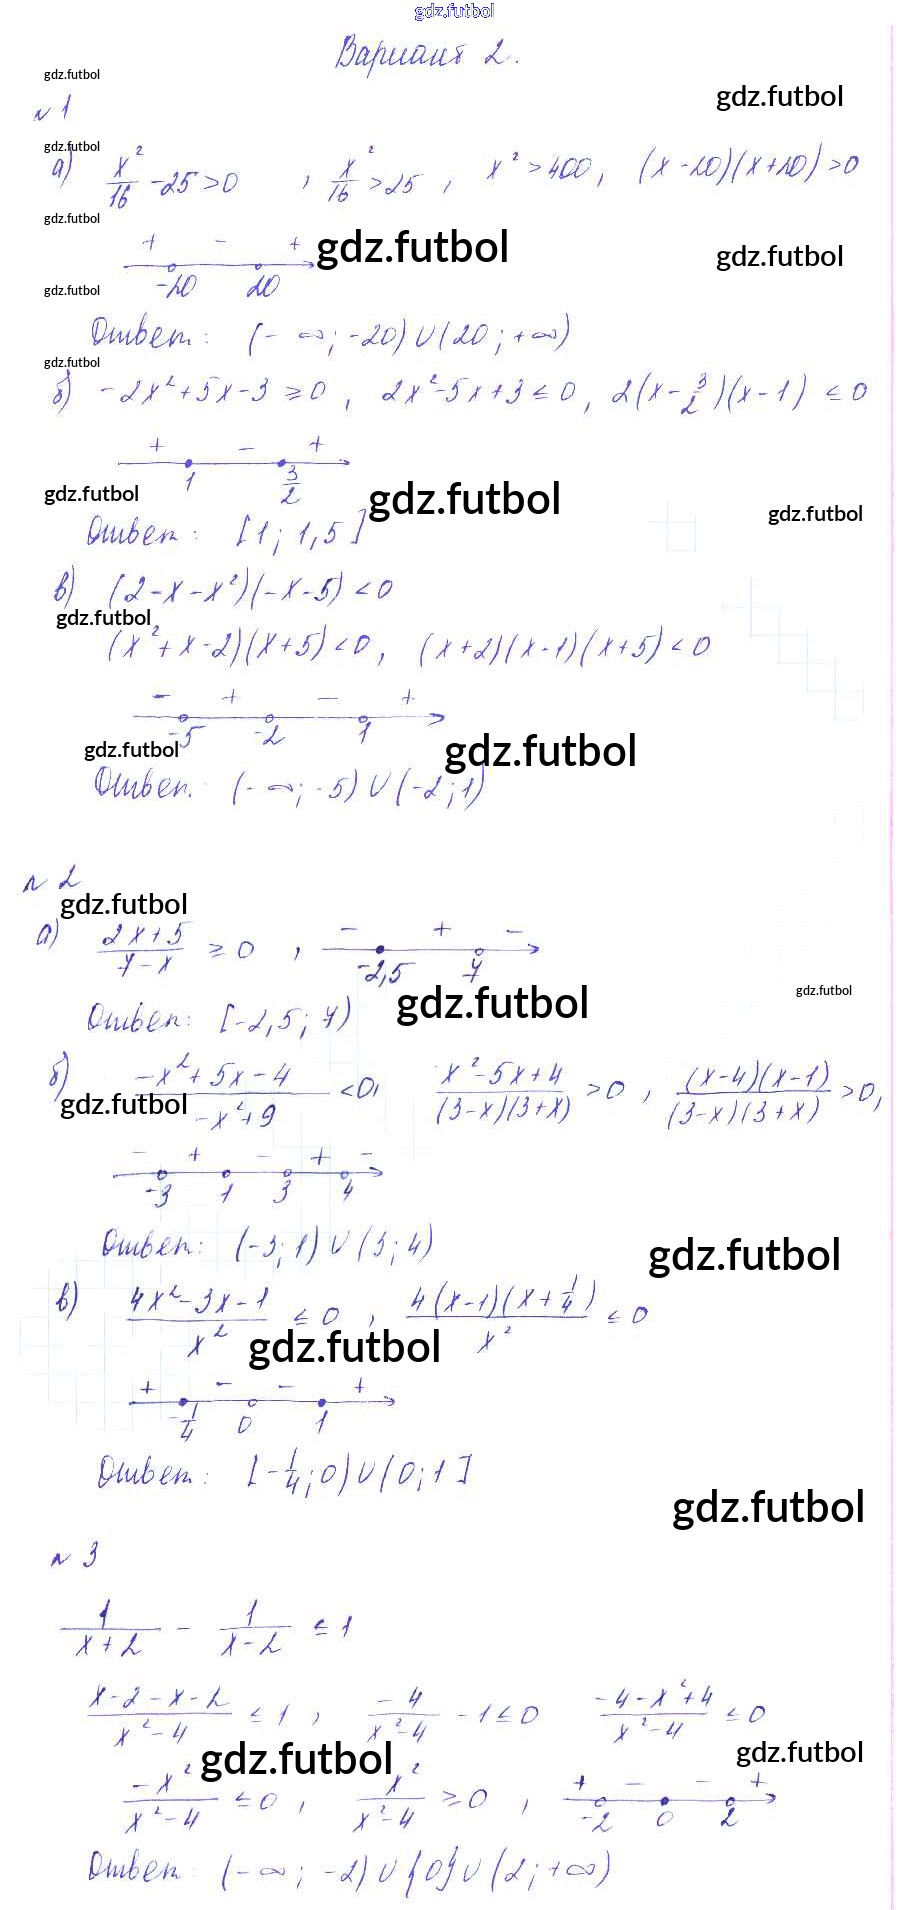 gdz.futbol
Вариант 2.
gdz.futbol
gdz.futbol
№1
gdz.futbol
а) x²/16 - 25 > 0 , x²/16 > 25 , x² > 400, (x - 20)(x + 20) > 0
gdz.futbol
+ - + gdz.futbol gdz.futbol
-20 20
gdz.futbol
Ответ: (-∞; -20) ∪ (20; +∞)
gdz.futbol
б) -2x² + 5x - 3 ≥ 0 , 2x² - 5x + 3 ≤ 0 , 2(x - 3/2)(x - 1) ≤ 0
+ - +
1 3/2
gdz.futbol gdz.futbol gdz.futbol
Ответ: [1; 1,5]
в) (2 - x - x²)(-x - 5) < 0
gdz.futbol
(x² + x - 2)(x + 5) < 0 , (x + 2)(x - 1)(x + 5) < 0
- + - +
-5 -2 1
gdz.futbol gdz.futbol
Ответ: (-∞; -5) ∪ (-2; 1)
№2
gdz.futbol
а) 2x + 5/7 - x ≥ 0 , - + -
-2,5 7
gdz.futbol gdz.futbol
Ответ: [-2,5; 7)
б) -x² + 5x - 4/-x² + 9 < 0, x² - 5x + 4/(3 - x)(3 + x) > 0 , (x - 4)(x - 1)/(3 - x)(3 + x) > 0,
gdz.futbol
- + - + -
-3 1 3 4
Ответ: (-3; 1) ∪ (3; 4)
gdz.futbol
в) 4x² - 3x - 1/x² ≤ 0 , 4(x - 1)(x + 1/4)/x² ≤ 0
gdz.futbol
+ - - +
-1/4 0 1
Ответ: [-1/4; 0) ∪ (0; 1]
gdz.futbol
№3
1/x + 2 - 1/x - 2 ≤ 1
x - 2 - x - 2/x² - 4 ≤ 1 , -4/x² - 4 - 1 ≤ 0 -4 - x² + 4/x² - 4 ≤ 0
gdz.futbol gdz.futbol
-x²/x² - 4 ≤ 0 , x²/x² - 4 ≥ 0 , + - - +
-2 0 2
Ответ: (-∞; -2) ∪ {0} ∪ (2; +∞)